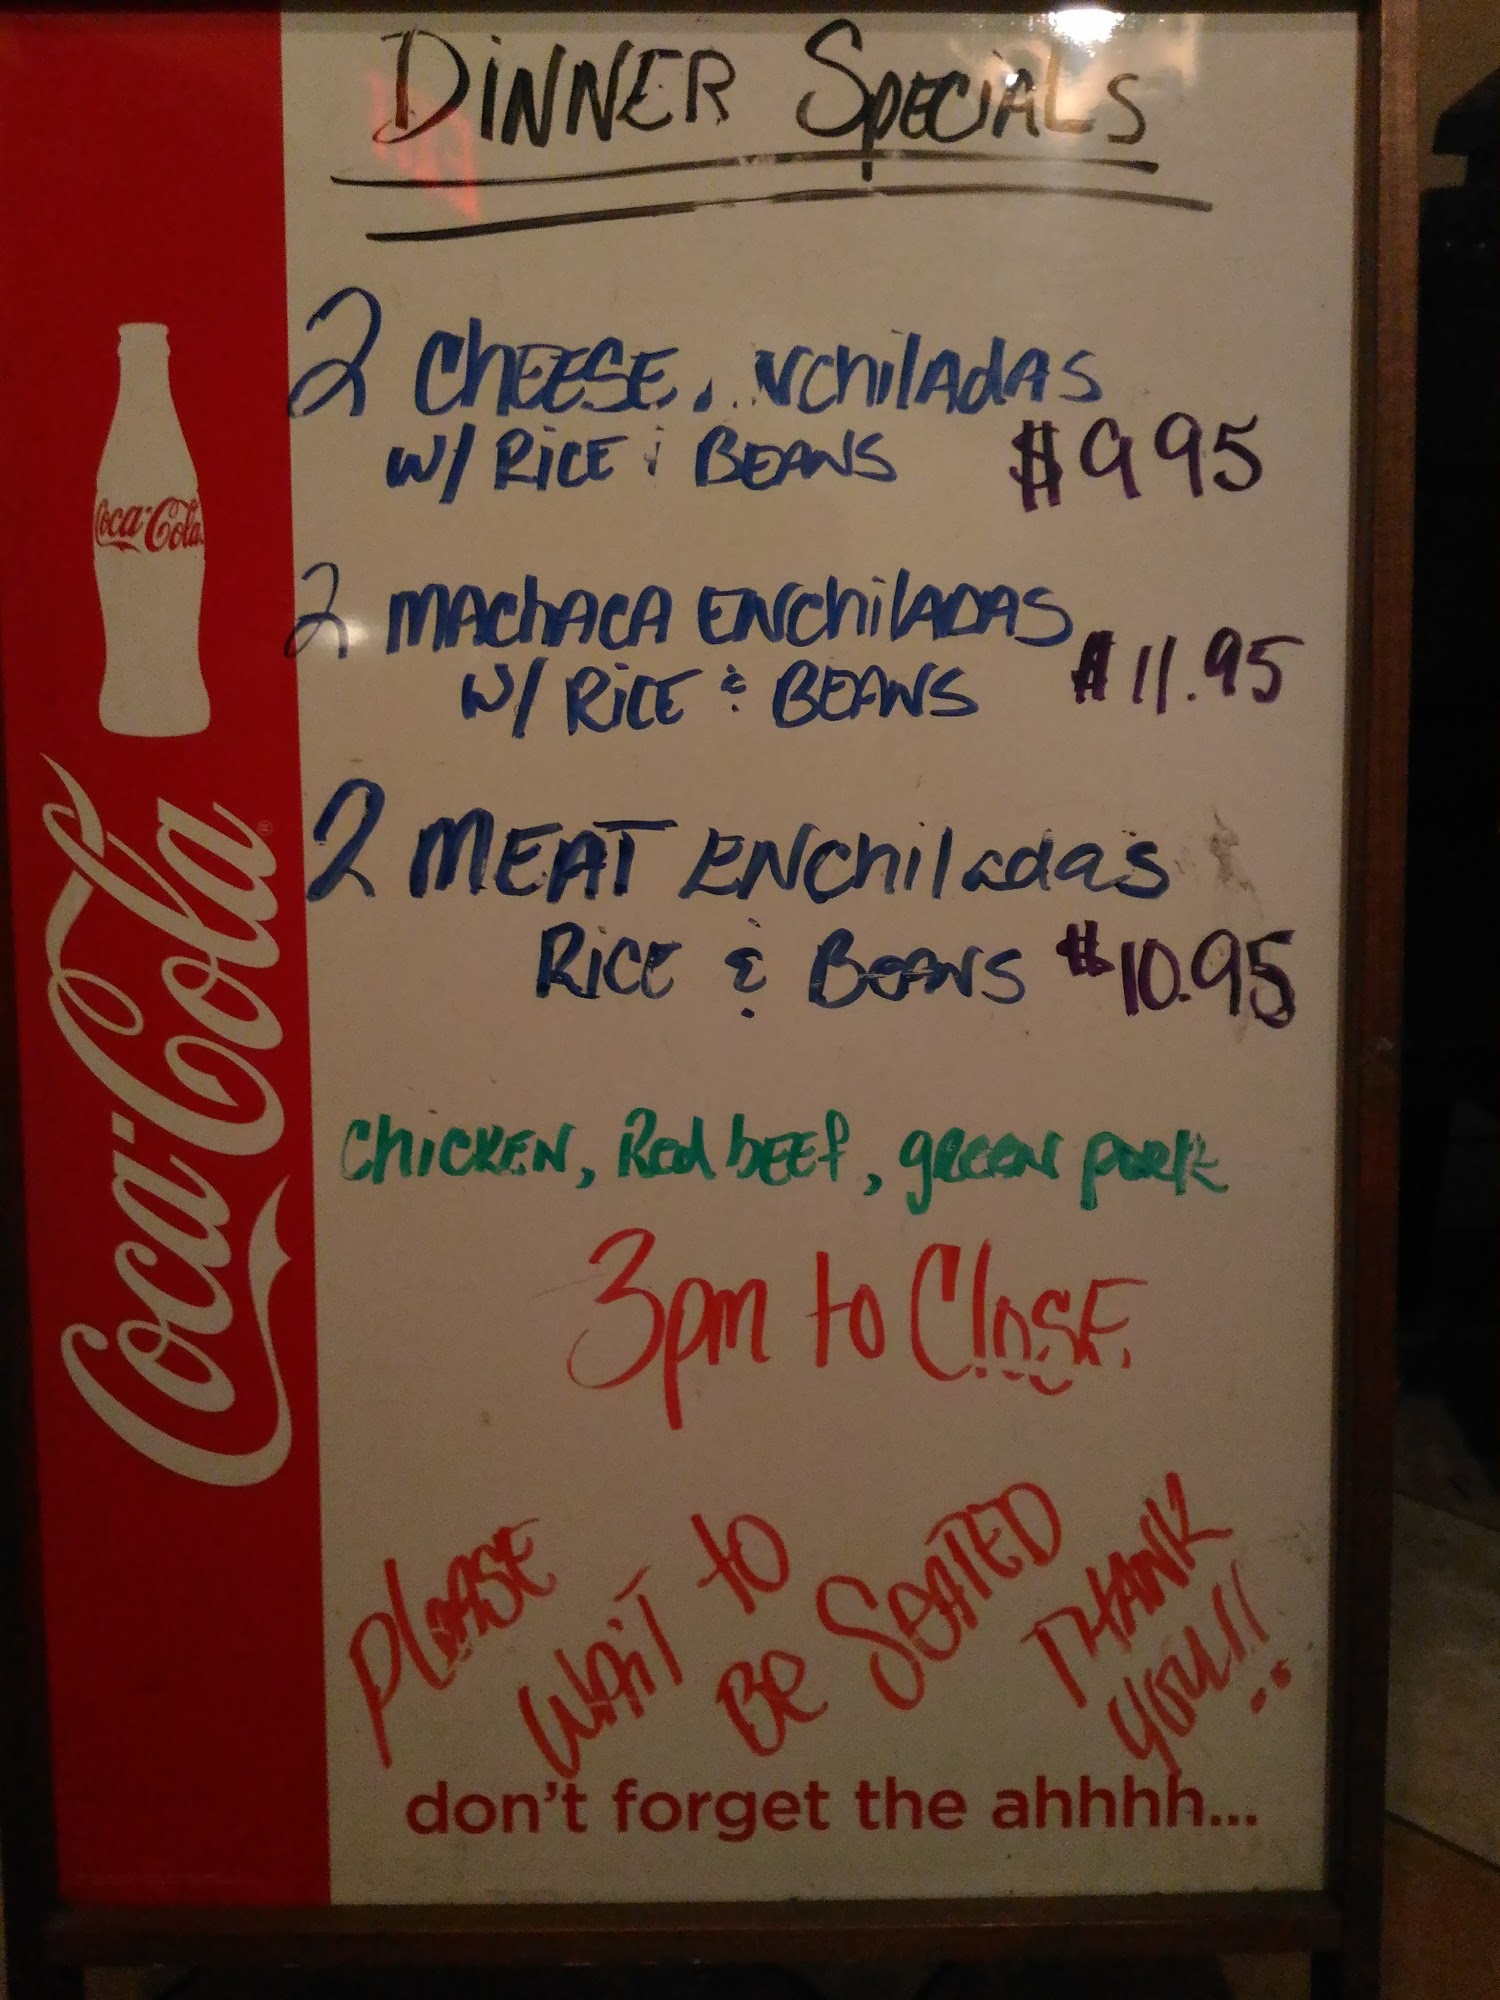 DiNNER SpECiALS
2 ChEESE . .. NchilAdAS
W/ RiCE & BEANS $9 95
2 MAChACA ENChiLADAS
W/ RiCE & BEANS $11.95
2 MEAT ENChiladas
RiCE & BEANS $10.95
ChiCKEN, Red bEEf, green pork
3pm to ClOSE
PlEASE
WAiT to
BE SEATED
THANK
YOU!!
don't forget the ahhhh...
Coca-Cola
Coca-Cola®